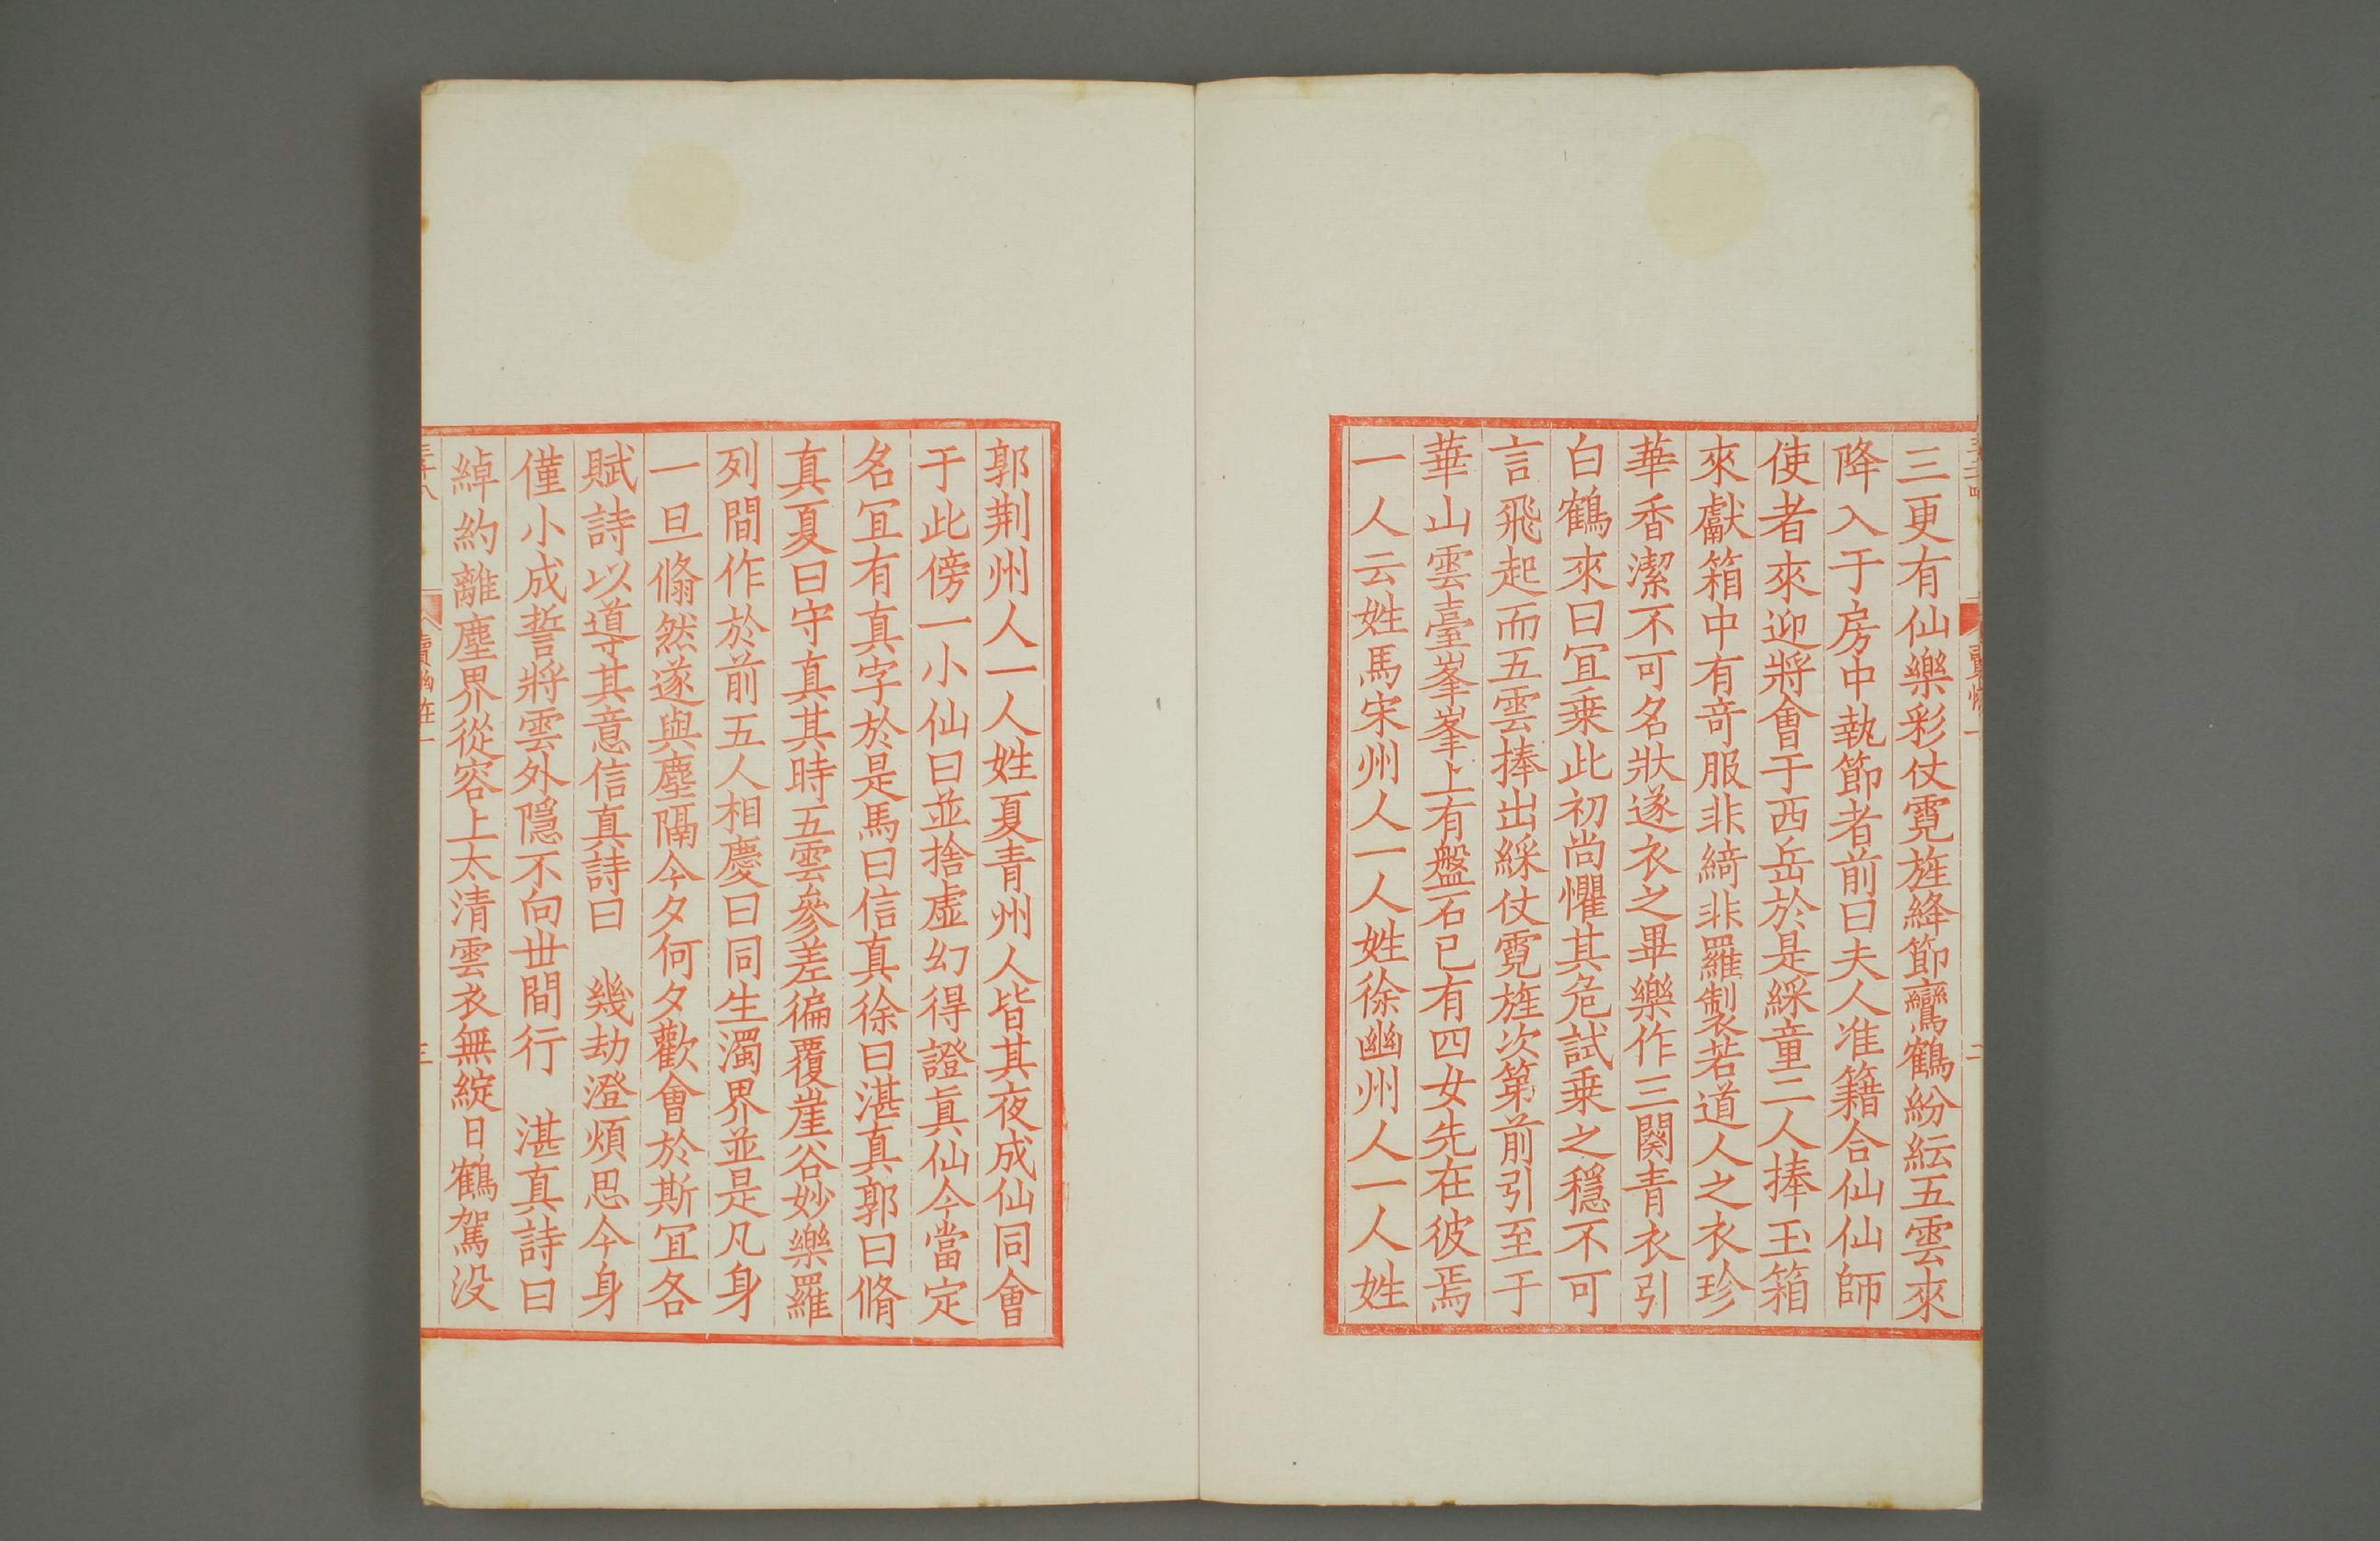 三更有仙樂彩仗霓旌絳節鸞鶴紛紜五雲來
降入于房中執節者前曰夫人准籍合仙仙師
使者來迎將會于西岳於是綵童二人捧玉箱
來獻箱中有奇服非綺非羅製若道人之衣珍
華香潔不可名狀遂衣之畢樂作三闋青衣引
白鶴來曰宜乗此初尚懼其危試乗之穩不可
言飛起而五雲捧出綵仗霓旌次第前引至于
華山雲臺峯峯上有盤石已有四女先在彼焉
一人云姓馬宋州人一人姓徐幽州人一人姓
郭荆州人一人姓夏青州人皆其夜成仙同會
于此傍一小仙曰並捨虛幻得證真仙今當定
名宜有真字於是馬曰信真徐曰湛真郭曰脩
真夏曰守真其時五雲參差徧覆崖谷妙樂羅
列間作於前五人相慶曰同生濁界並是凡身
一旦翛然遂與塵隔今夕何夕歡會於斯宜各
賦詩以導其意信真詩曰　幾劫澄煩思今身
僅小成誓將雲外隱不向世間行　湛真詩曰
綽約離塵界從容上太清雲衣無綻日鶴駕没